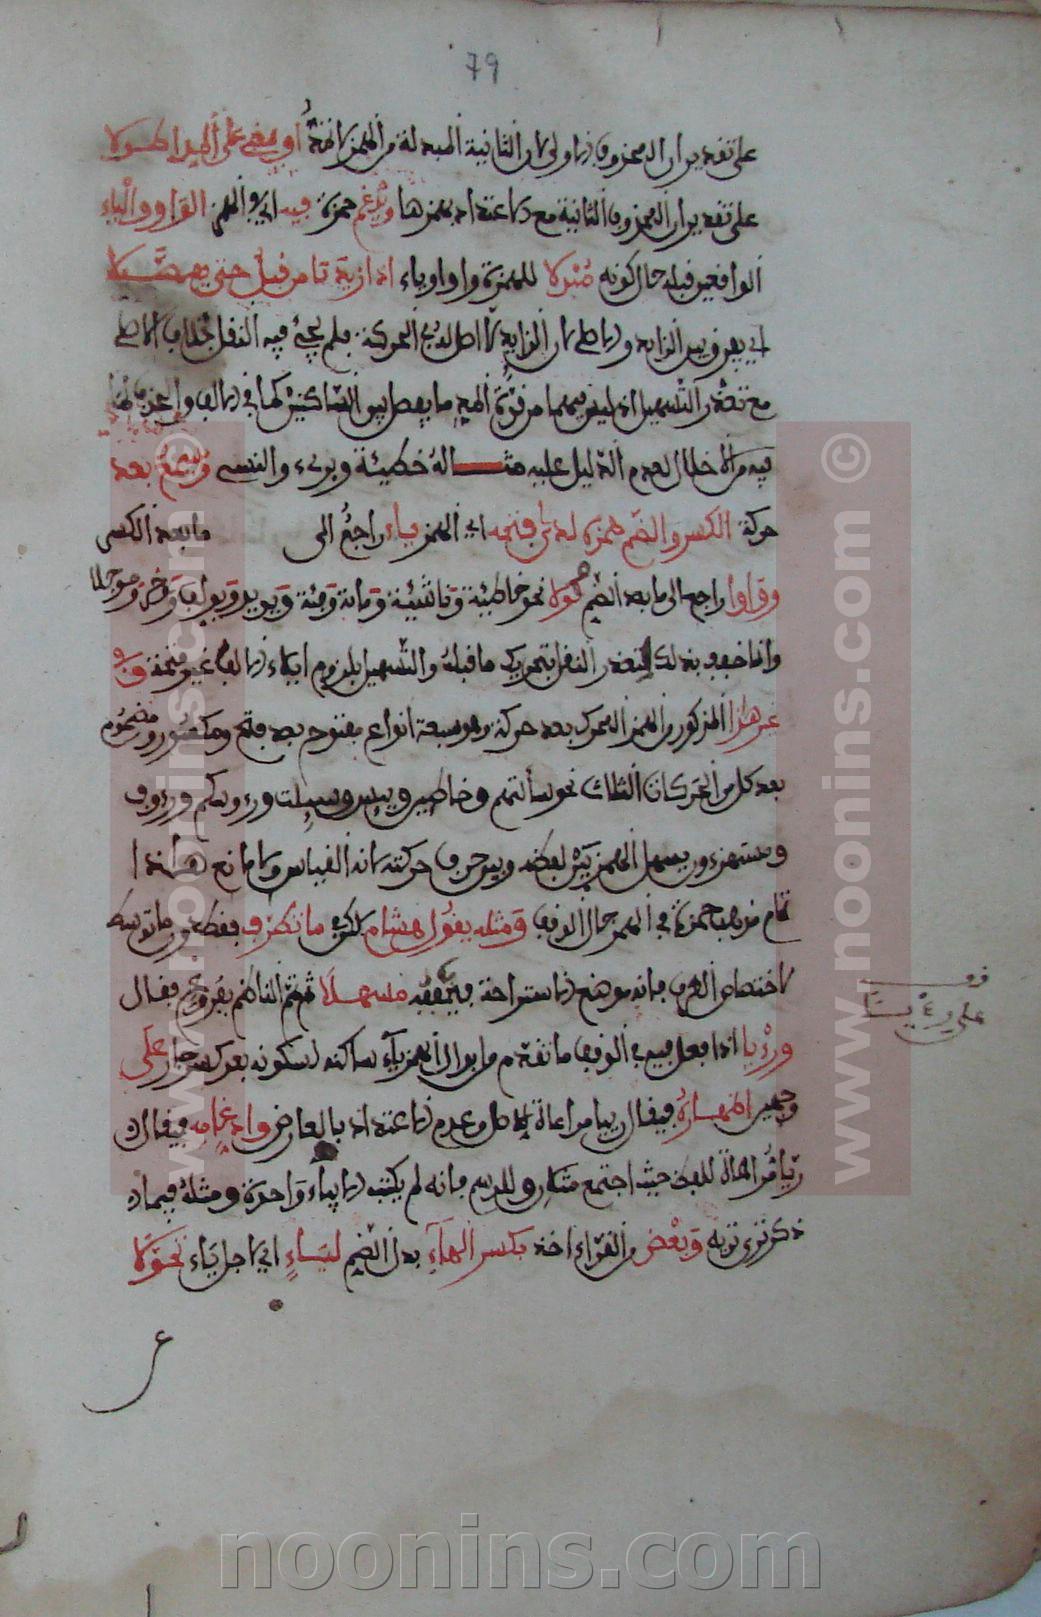 79
على تقدير ان المحذوف الاولى لان الثانية المبدلة من الهمز لانه أو يبقى على المد اطولا
على تقدير ان المحذوف الثانية مع الاعتداد بهمزها ويدغم حمزة فيه اي في الهمز الواو والياء
الواقعين قبله حال كونه مبدلا للهمزة واوا وياء اذا زيدتا من قبل حتى يفصلا
اي يفرق بين الزايد والاصلي لان الزايد لا اصل له في الحركة فلم يجئ فيه النقل بخلاف الاصلي
مع تعذر التسهيل اذ ليس فيهما من قوة المد ما يفصل بين الساكنين كما في الالف والحذف لما
فيه من الاخلال لعدم الدليل عليه مثاله خطيئة وبرىء والنسى ويسمع بعد
حركة الكسر والضم همزه لدى فتحه اي الهمز ياء راجع الى ما بعد الكسر
وواوا راجع الى ما بعد الضم محولا نحو خاطئة وناشئة ومائة وفئة ويويد ويولف وموجلا
وانما خفف بذلك لتعذر النقل بتحريك ما قبله والتسهيل بلزوم ايلاء الالف غير فتحة وفى
غير هذا المذكور من الهمز المحرك بعد حركة وهو سبعة انواع مفتوح بعد فتح ومكسور ومضموم
بعد كل من الحركات الثلاث نحو سألتهم وخاطين ويئس وسيلت ورءوسكم ورءوف
ومستهزءون يسهل الهمز بين لفظه وبين حرف حركته لانه القياس ولا مانع هاهنا
تمام مذهب حمزة في الهمز حال الوقف ومثله يقول هشام كلوف ما تطرف فقط دون ما توسط
لاختصاص الطرف بانه موضع الاستراحة فيخففه مسهلا ثم تمم الناظم بفروع فقال
ورءيا اذا فعل فيه في الوقف ما تقدم من ابدال الهمز ياء ساكنة لسكونه بعد كسر جار على
وجهين اظهاره فيقال رييا مراعاة للاصل وعدم الاعتداد بالعارض وادغامه فيقال
ريّا مراعاة للفظ حيث اجتمع مثلان وللرسم فانه لم يكتب الا بياء واحدة ومثله فيما
ذكر تؤوى تؤيه وبعض من القراء اخذ بكسر الهاء بدل الضم لياء اي لاجل ياء تحولا
على ورءيا
© www.noonins.com
© www.noonins.com
noonins.com